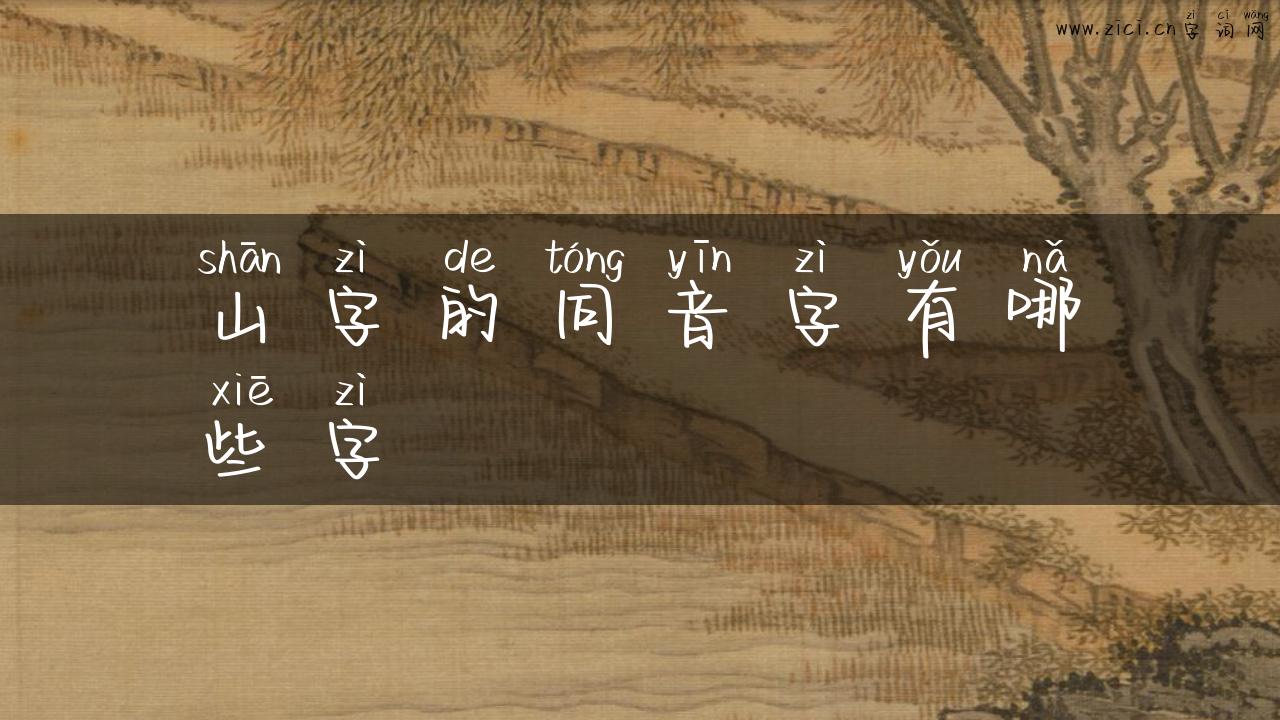 zì cí wǎng
www.zici.cn字词网
shān zì de tóng yīn zì yǒu nǎ
山字的同音字有哪
xiē zì
些字